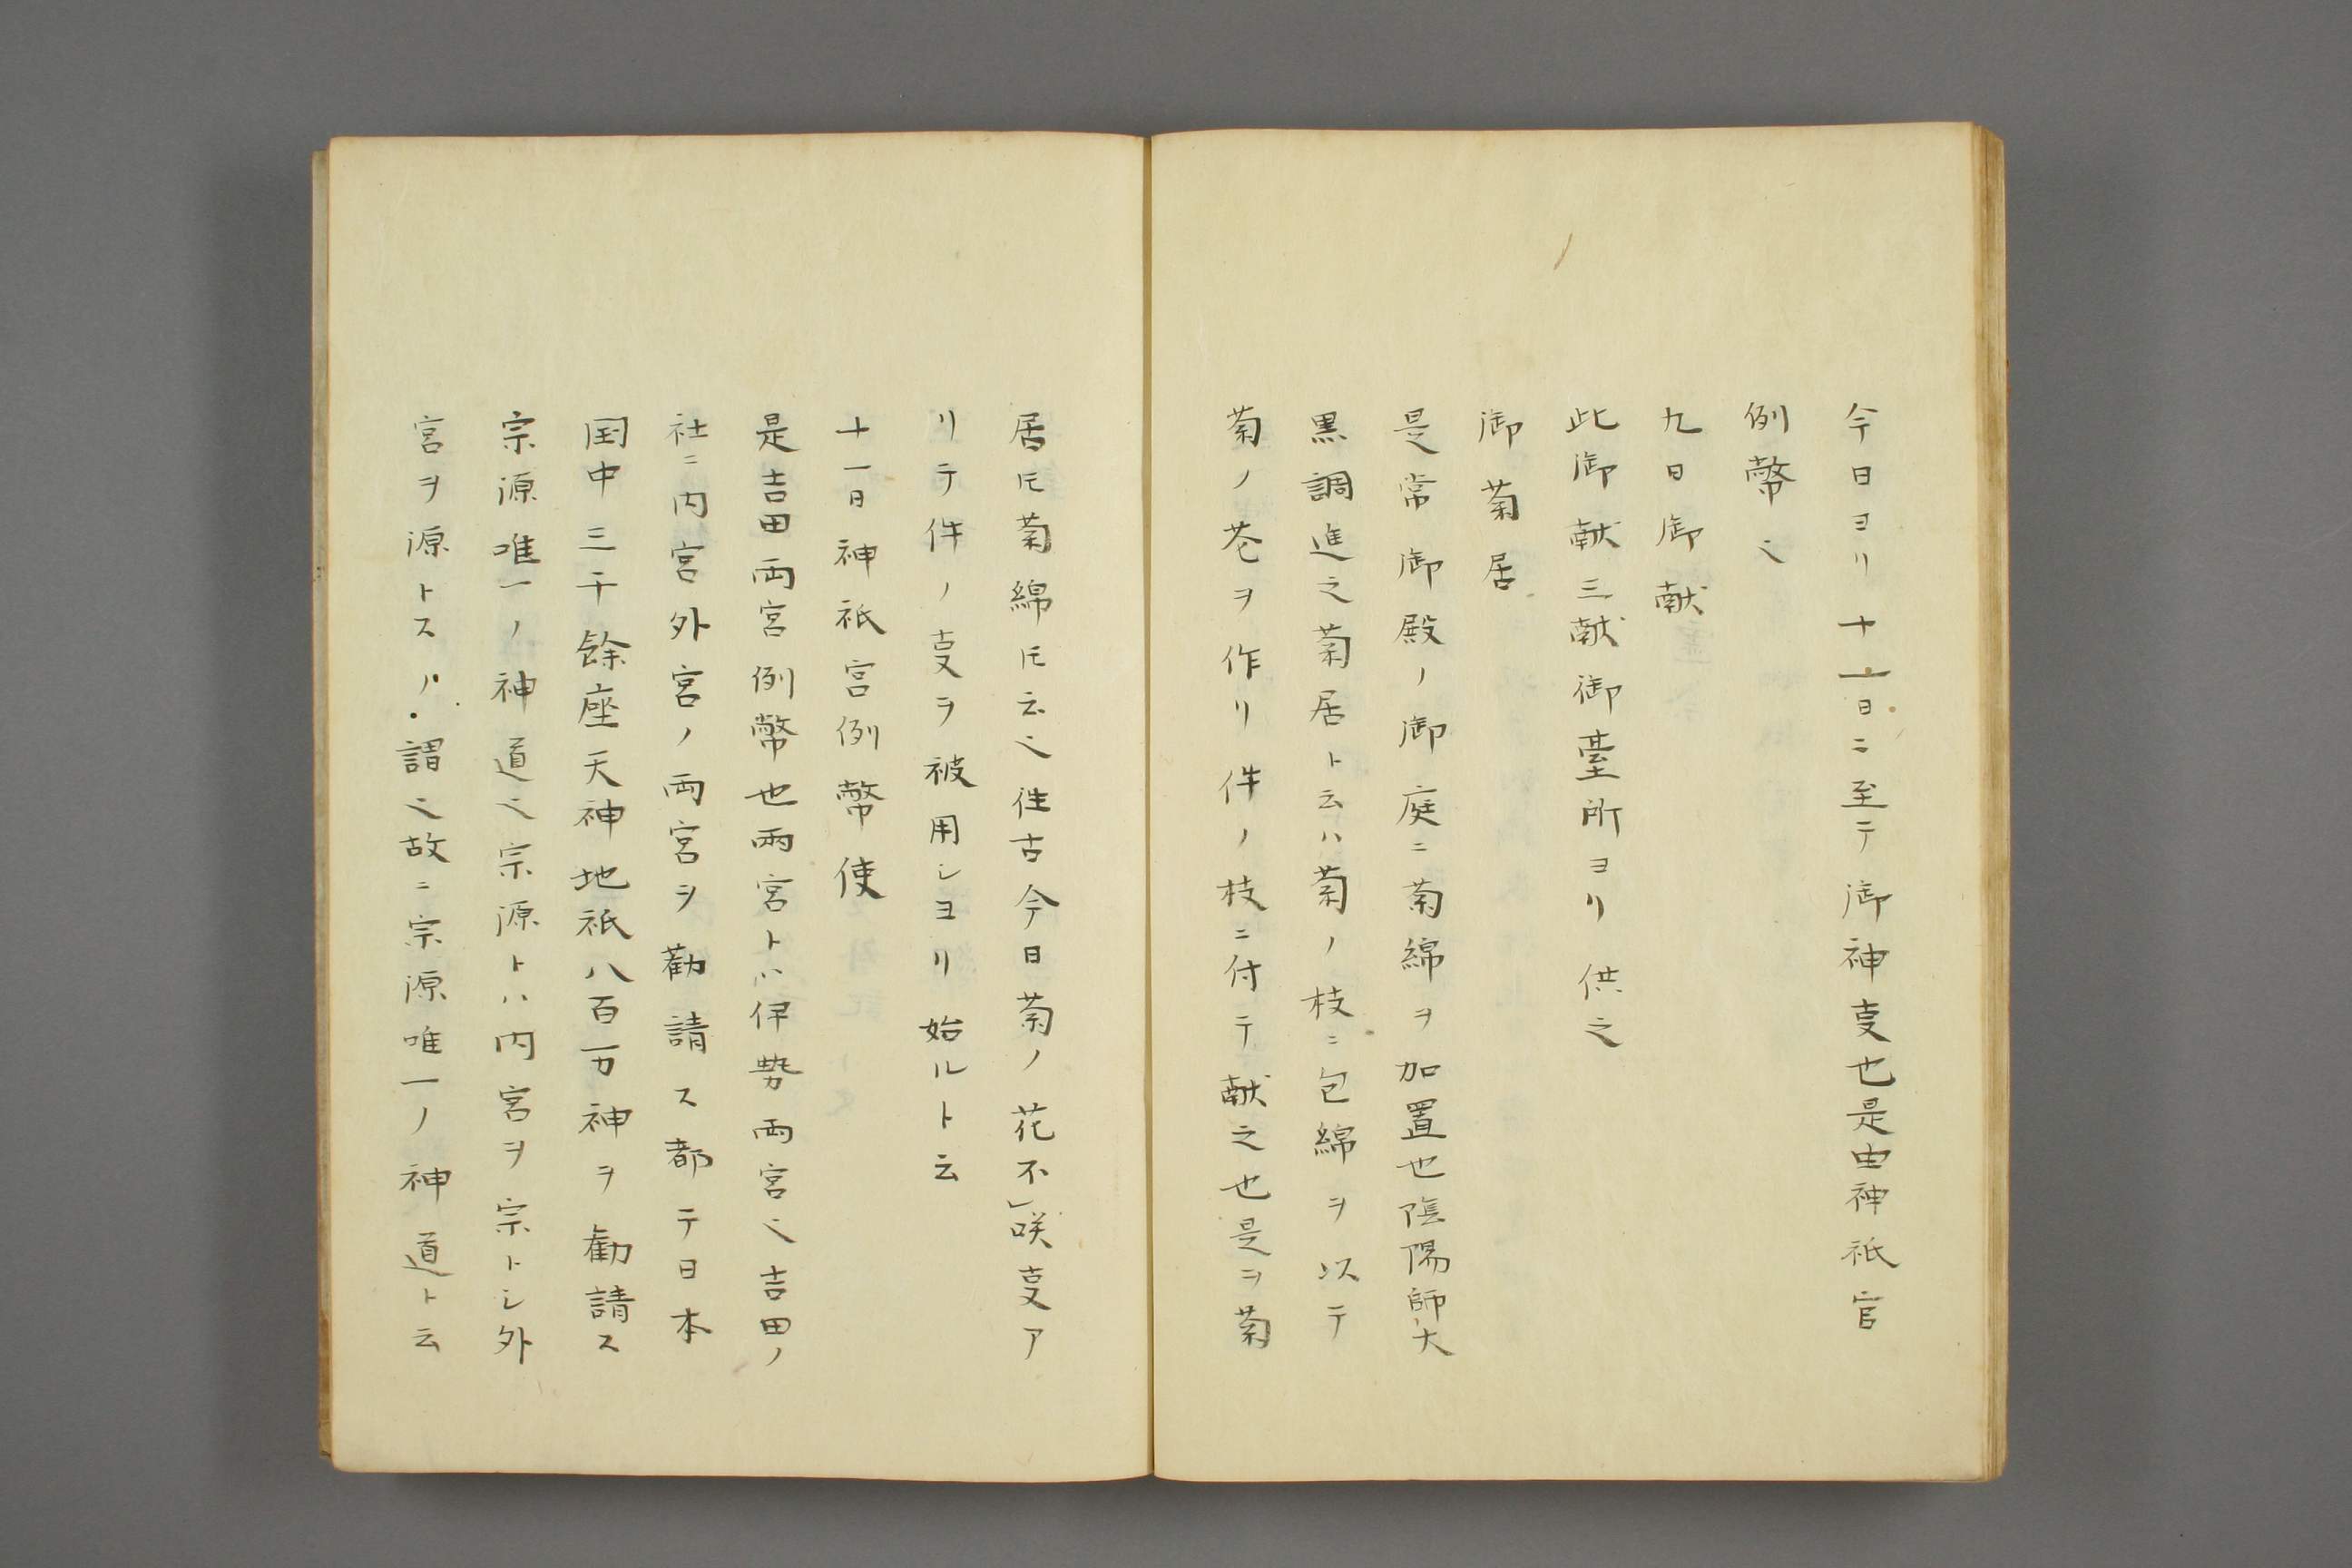 今日ヨリ十一日ニ至テ御神㕝也是由神祇官
例幣〻
九日御献
此御献三献御䑓所ヨリ供之
御菊居
是常御殿ノ御庭ニ菊綿ヲ加置也陰陽師大
黒調進之菊居ト云ハ菊ノ枝ニ包綿ヲ以テ
菊ノ苍ヲ作リ件ノ枝ニ付テ献之也是ヲ菊
居𪜈菊綿𪜈云〻往古今日菊ノ花不咲㕝ア
リテ件ノ㕝ヲ被用シヨリ始ルト云
十一日神祇宮例幣使
是吉田両宮例幣也両宮トハ伊勢両宮〻吉田ノ
社ニ内宮外宮ノ両宮ヲ勧請ス都テ日本
国中三千餘座天神地祇八百万神ヲ勧請ス
宗源唯一ノ神道〻宗源トハ内宮ヲ宗トシ外
宮ヲ源トスノ謂〻故ニ宗源唯一ノ神道ト云